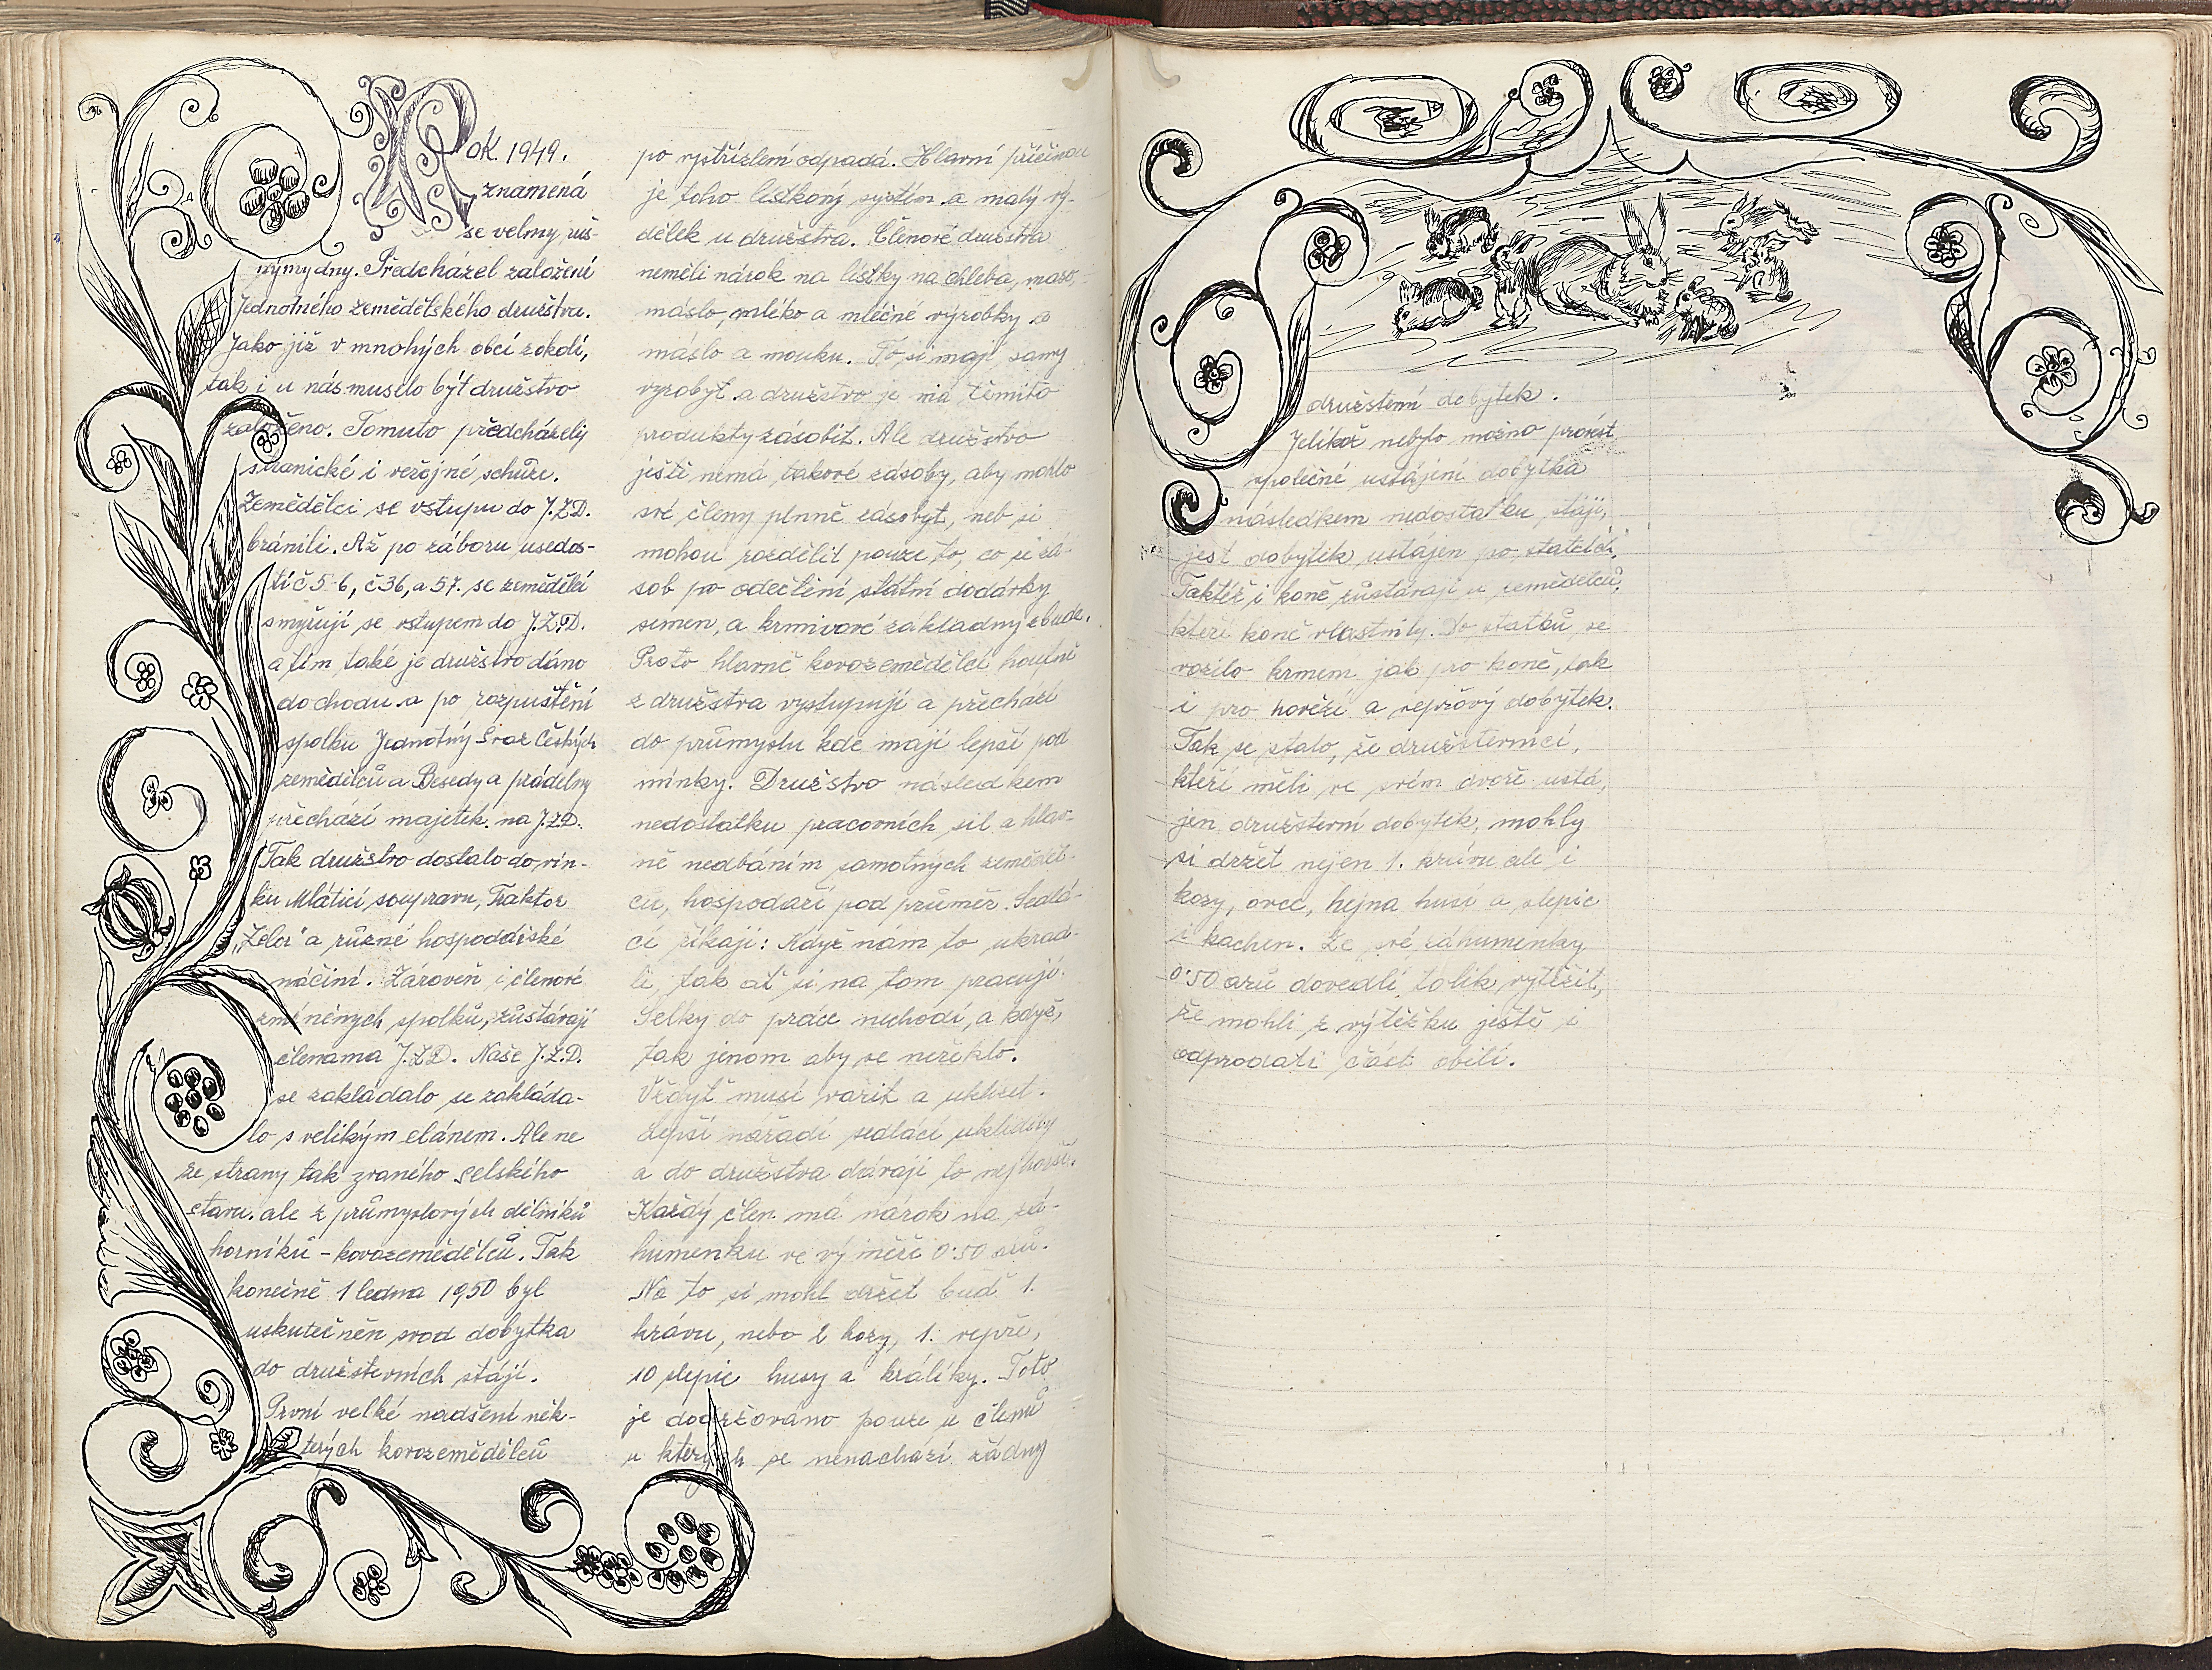 Rok. 1949.
znamená
se velmy ruš-
nýmy dny. Předcházel založení
Jednotného zemědělského družstva.
Jako již v mnohých obcí zokolí,
tak i u nás muselo být družstvo
založeno. Tomuto předcházely
stranické i veřejné schůze.
Zemědělci se vstupu do J.Z.D.
bránili. Až po záboru usedos-
tí č 5-6, č 36, a 57. se zemědělci
smyřují se vstupem do J.Z.D.
a tím také je družstvo dáno
do chodu. a po rozpuštění
spolku Jednotný Svaz Českých
zemědělců a Besedy a prádelny
přechází majetek. na J.Z.D.
Tak družstvo dostalo do vín-
ku Mlátící soupravu, Traktor
„Zetor" a různé hospoddiské
náčiní. Zároveň i členové
změněných spolků, zůstávají
členama J.Z.D. Naše J.Z.D.
se zakládalo se zakláda-
lo s velikým elánem. Ale ne
ze strany tak zvaného selského
stavu. ale z průmyslových dělníků
horníků - kovozemědělců. Tak
konečně 1 ledna 1950 byl
uskutečněn svod dobytka
do družstevních stájí.
První velké nadšení něk-
terých kovozemědělců
po vystřízlení odpadá. Hlavní příčinou
je toho lístkový systém a malý vý-
dělek u družstva. Členové družstva
neměli nárok na lístky na chleba, maso,
máslo, mléko a mléčné výrobky a
máslo a mouku. To si mají samy
vyrobyt a družstvo je má těmito
produkty zásobit. Ale družstvo
ještě nemá takové zásoby, aby mohlo
své členy plnně zásobyt, neb si
mohou rozdělit pouze to, co si zá-
sob po odečtení státní dodávky
semen, a krmivové základny zbude.
Proto hlavně kovozemědělci houfně
z družstva vystupují a přechází
do průmyslu kde mají lepší pod
mínky. Družstvo následkem
nedostatku pracovních sil a hlav-
ně nedbáním samotných zeměděl-
ců, hospodaří pod průměr. Sedlá-
cí říkají: Když nám to ukrad-
li, tak ať si na tom pracují.
Selky do práce nechodí, a když,
tak jenom aby se neřeklo.
Vždyť musí vařit a uklízet.
Lepší nářadí sedláci uklidily
a do družstva dávají to nejhorší.
Každý člen má nárok na zá-
humenku ve vý měře 0·50 arů.
Na to si mohl držet buď 1.
krávu, nebo 2 kozy, 1. vepře,
10 slepic husy a králíky. Toto
je dodržováno pouze u členů
u kterých se nenachází žádny
družstevní dobytek.
Jelikož nebylo možno provést
společné ustájení dobytka
následkem nedostatku stájí,
jest dobytek ustájen po statcích.
Taktéž i koně zůstávají u zemědělců,
kteří koně vlastnily. Do statků se
vozilo krmení jak pro koně, tak
i pro hovězí a vepřový dobytek.
Tak se stalo, že družstevníci,
kteří měli ve svém dvoře ustá,
jen družstevní dobytek, mohly
si držet nejen 1. krávu ale i
kozy, ovce, hejna husí a slepic
i kachen. Ze své záhumenky
0·50 arů dovedli tolik vytěžit,
že mohli z výtěžku ještě i
odprodati část obilí.